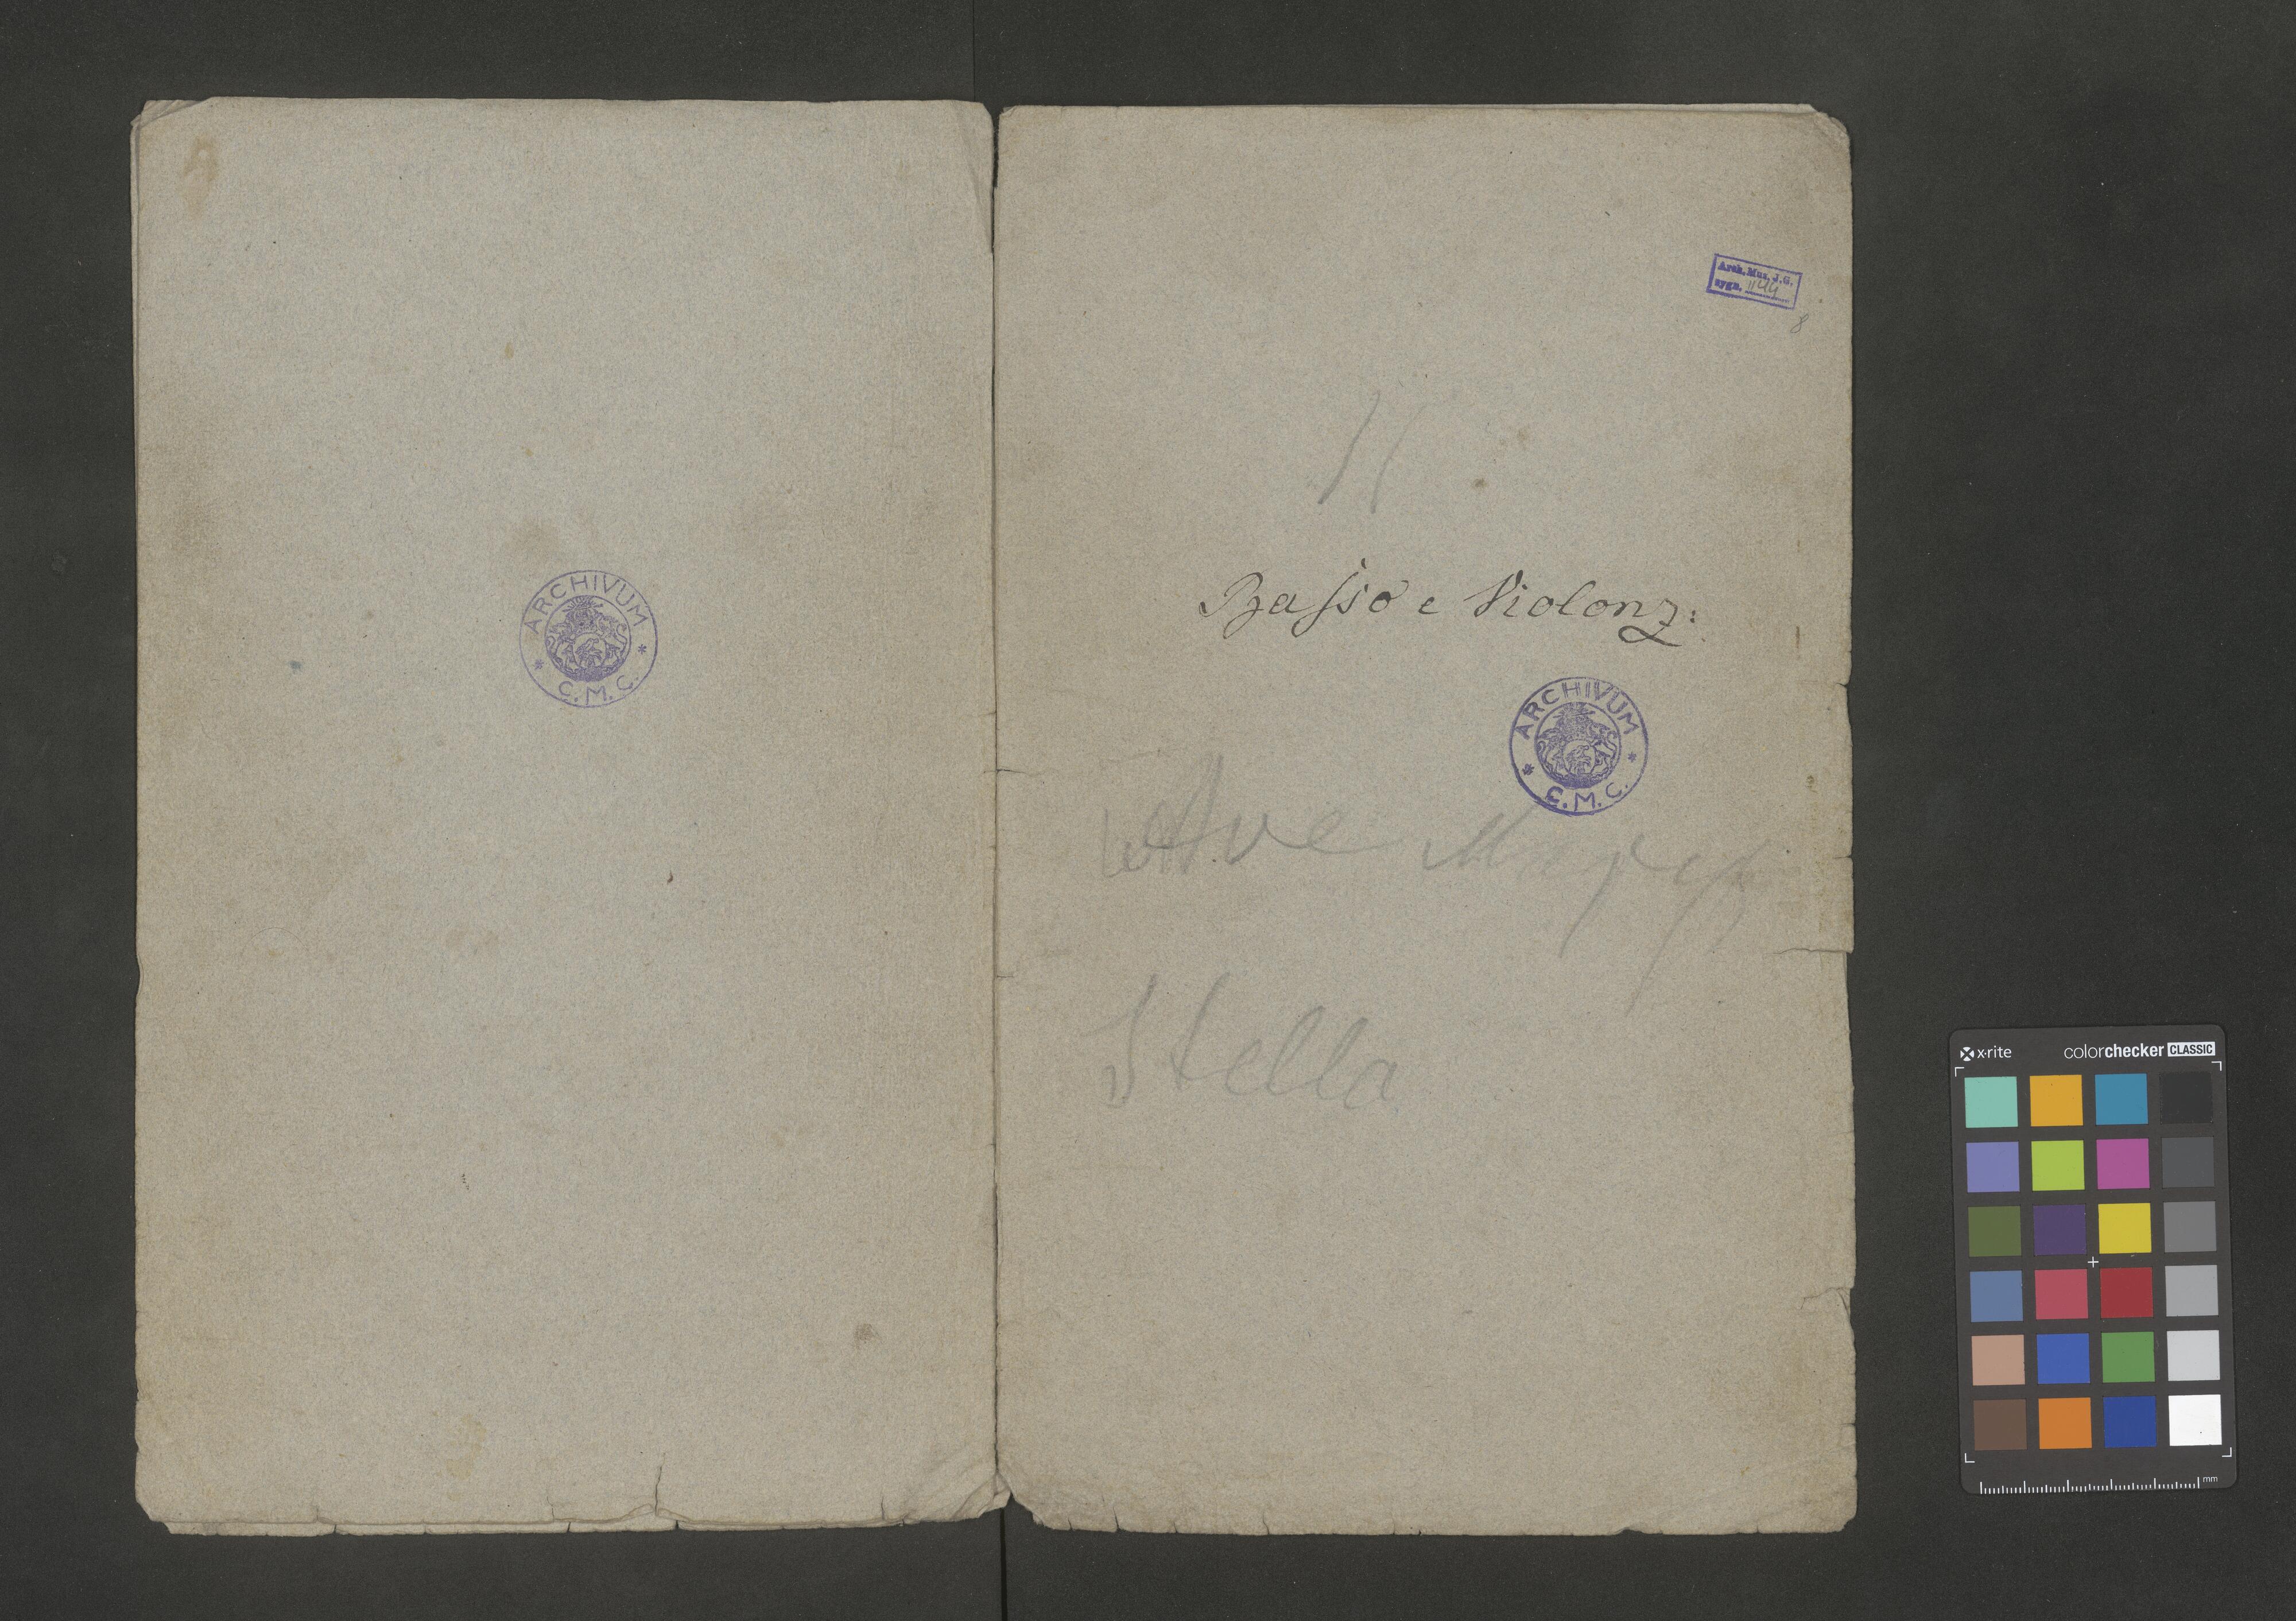 ARCHIVUM
* C. M. C. *
Arch. Mus. J.G.
sygn. 1144
8
Basso e Violonz:
ARCHIVUM
* C. M. C. *
Ave
Stella
x·rite colorchecker CLASSIC
mm